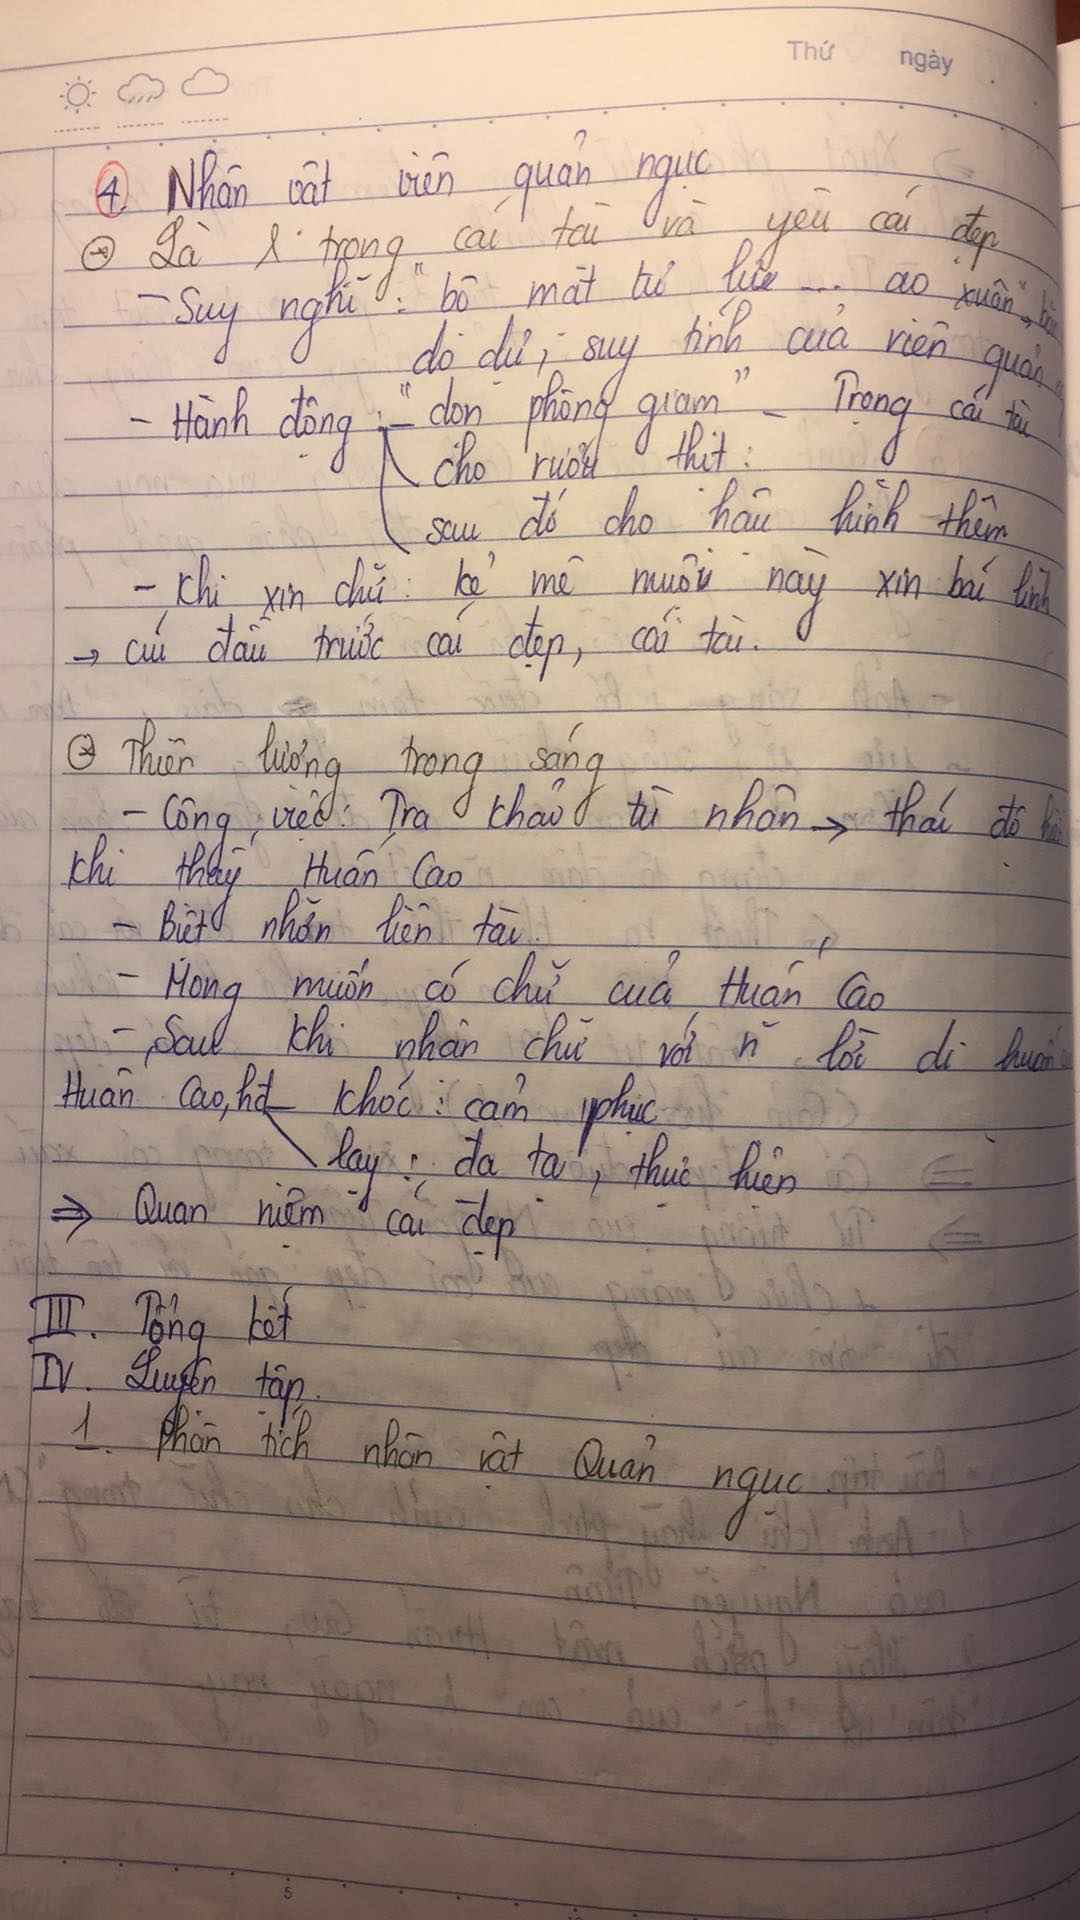 Thứ ngày
4 Nhân vật viên quản ngục
Là trọng cái tài và yêu cái đẹp
- Suy nghĩ: "bộ mặt tư lự ... ao xuân" →
do dự, suy tính của viên quản
- Hành động: - "dọn phòng giam" - Trọng cái tài
cho rượu thịt:
sau đó cho hậu hĩnh thêm
- Khi xin chữ: kẻ mê muội này xin bái lĩnh
→ cúi đầu trước cái đẹp, cái tài.
Thiên lương trong sáng
- Công việc: Tra khảo tù nhân → thái độ
khi thấy Huấn Cao
- Biệt nhỡn liên tài.
- Mong muốn có chữ của Huấn Cao
- Sau khi nhận chữ với n~ lời di huấn
Huấn Cao, hđ khóc: cảm phục
lạy: đa tạ, thực hiện
⇒ Quan niệm cái đẹp
III. Tổng kết
IV. Luyện tập.
1. Phân tích nhân vật Quản ngục.
5